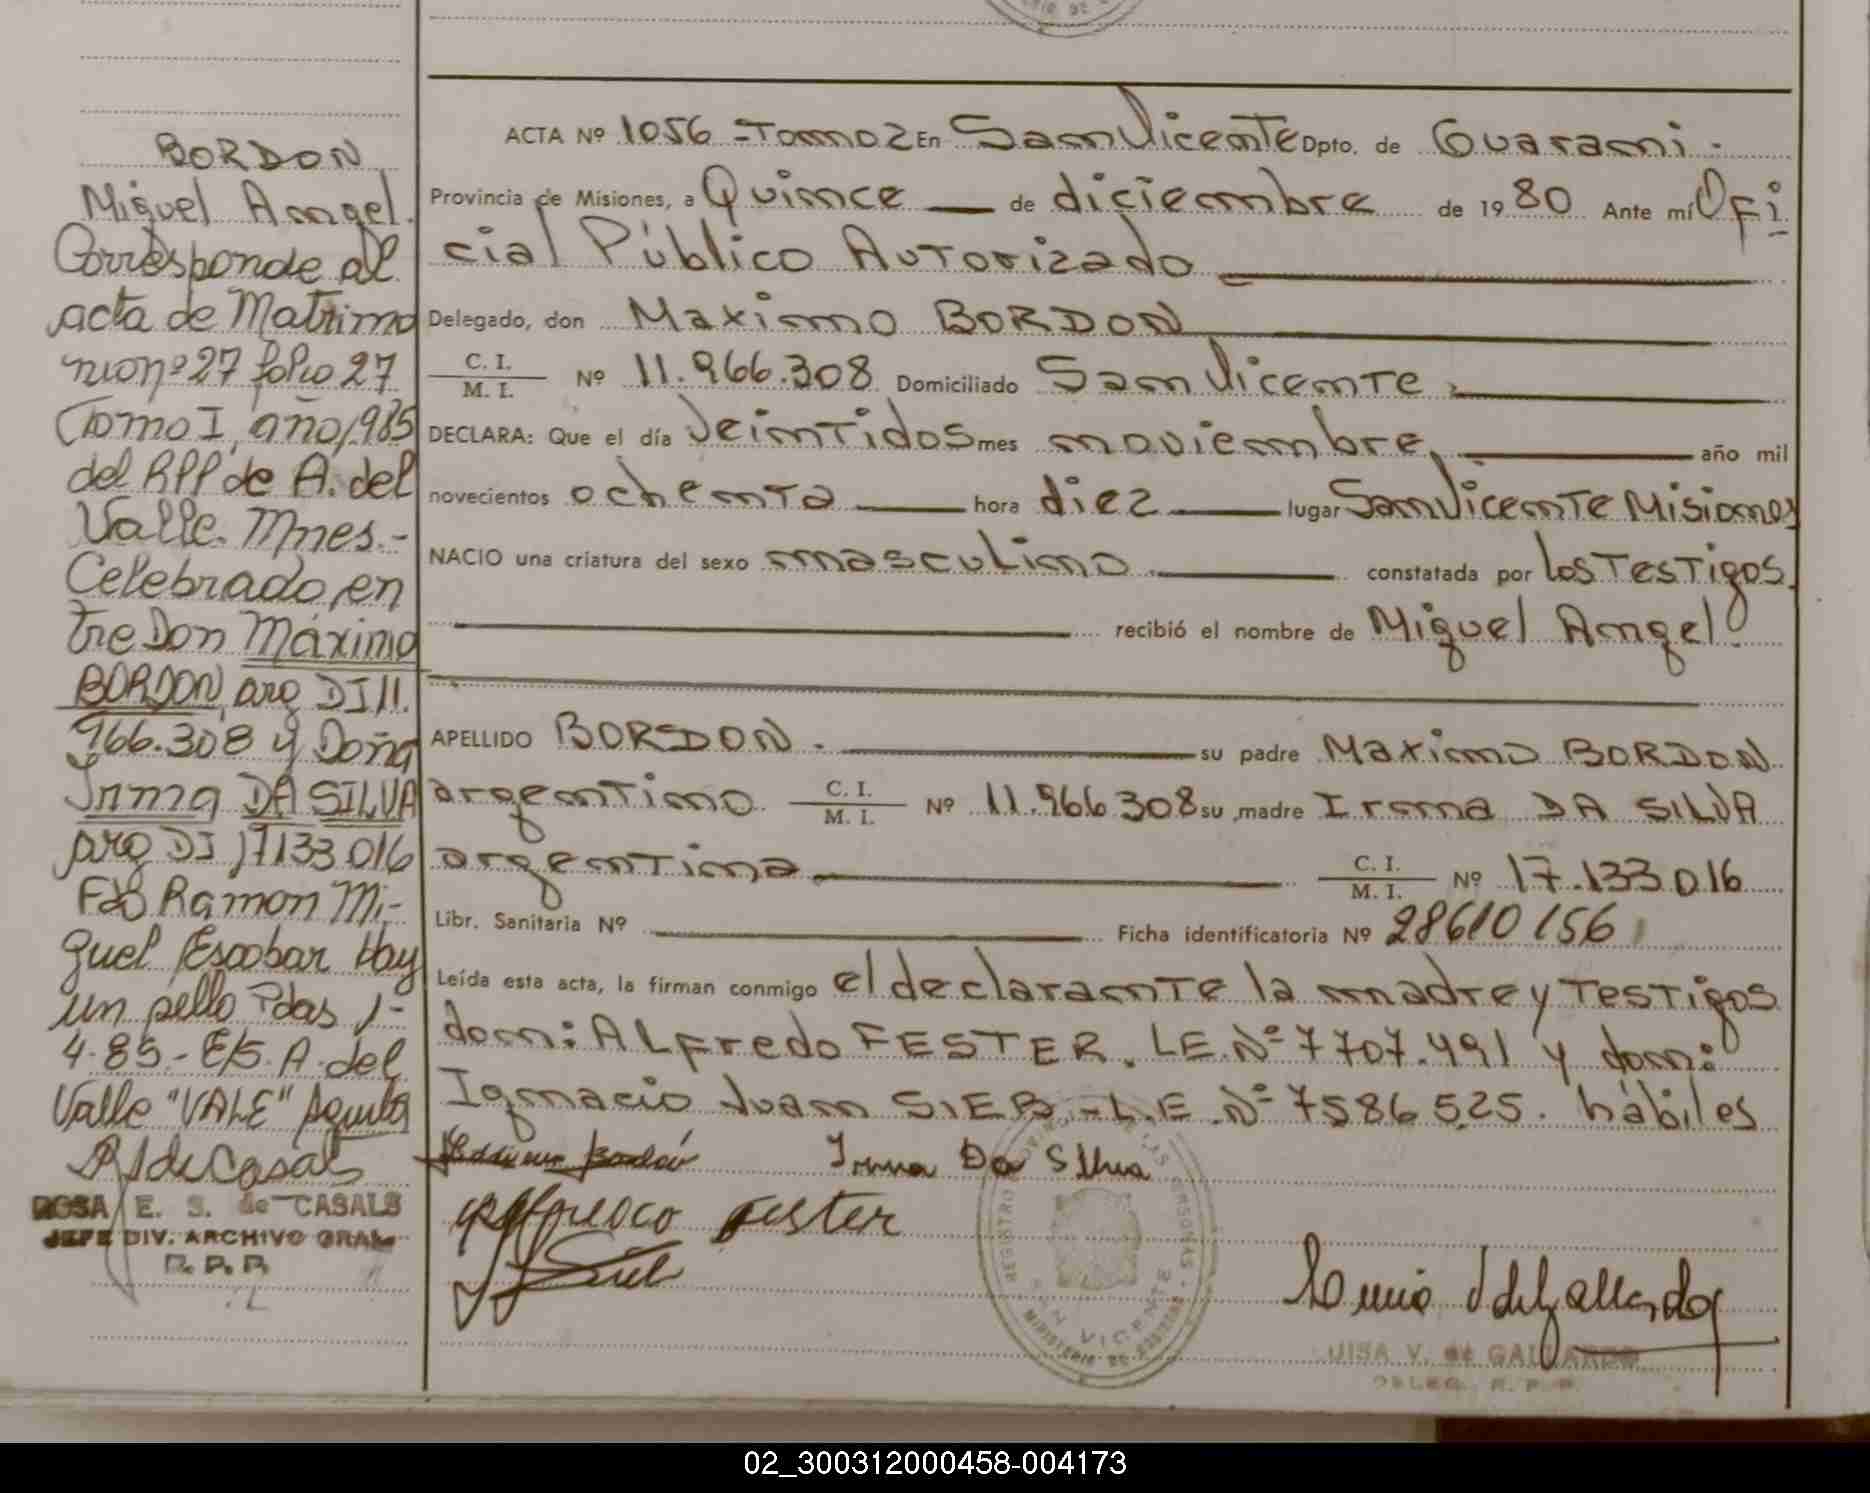 BORDON
Miguel Angel.
Corresponde al
acta de Matrimo
nio nº 27 folio 27
Tomo I, año 1.985
del RPP de A. del
Valle. Mnes.-
Celebrado en
tre Don Máximo
BORDON, arg DI 11.
966.308 y Doña
Irma DA SILVA
arg DI 17133016
Fdo Ramon Mi-
guel Escobar Hay
un sello Pdas 1-
4-85.- E/S. A. del
Valle "VALE"
ROSA E. S. de CASALS
JEFE DIV. ARCHIVO GRAL
R. P. P.
ACTA Nº 1056 -Tomo 2 En San Vicente Dpto. de Guarani.
Provincia de Misiones, a Quince de diciembre de 1980 Ante mí Ofi
cial Público Autorizado
Delegado, don Maximo BORDON
C. I.
M. I. Nº 11.966.308 Domiciliado San Vicente,
DECLARA: Que el día Veintidos mes noviembre, año mil
novecientos ochenta hora diez lugar San Vicente Misiones
NACIO una criatura del sexo masculino constatada por los Testigos.
recibió el nombre de Miguel Angel.
APELLIDO BORDON. su padre Maximo BORDON
argentino C. I.
M. I. Nº 11.966.308 su madre Irma DA SILVA
argentina C. I.
M. I. Nº 17.133.016
Libr. Sanitaria Nº Ficha identificatoria Nº 28610156
Leída esta acta, la firman conmigo el declarante la madre y Testigos
don: Alfredo FESTER. LE.Nº 7707.491 y don:
Ignacio Juan SIEB -L.E.Nº 7586525. hábiles
Irma Da Silva
Fester
REGISTRO PROVINCIAL DE LAS PERSONAS
SAN VICENTE
MINISTERIO DE GOBIERNO
LUISA V. de GALLARDO
DELEG. R. P. P.
02_300312000458-004173